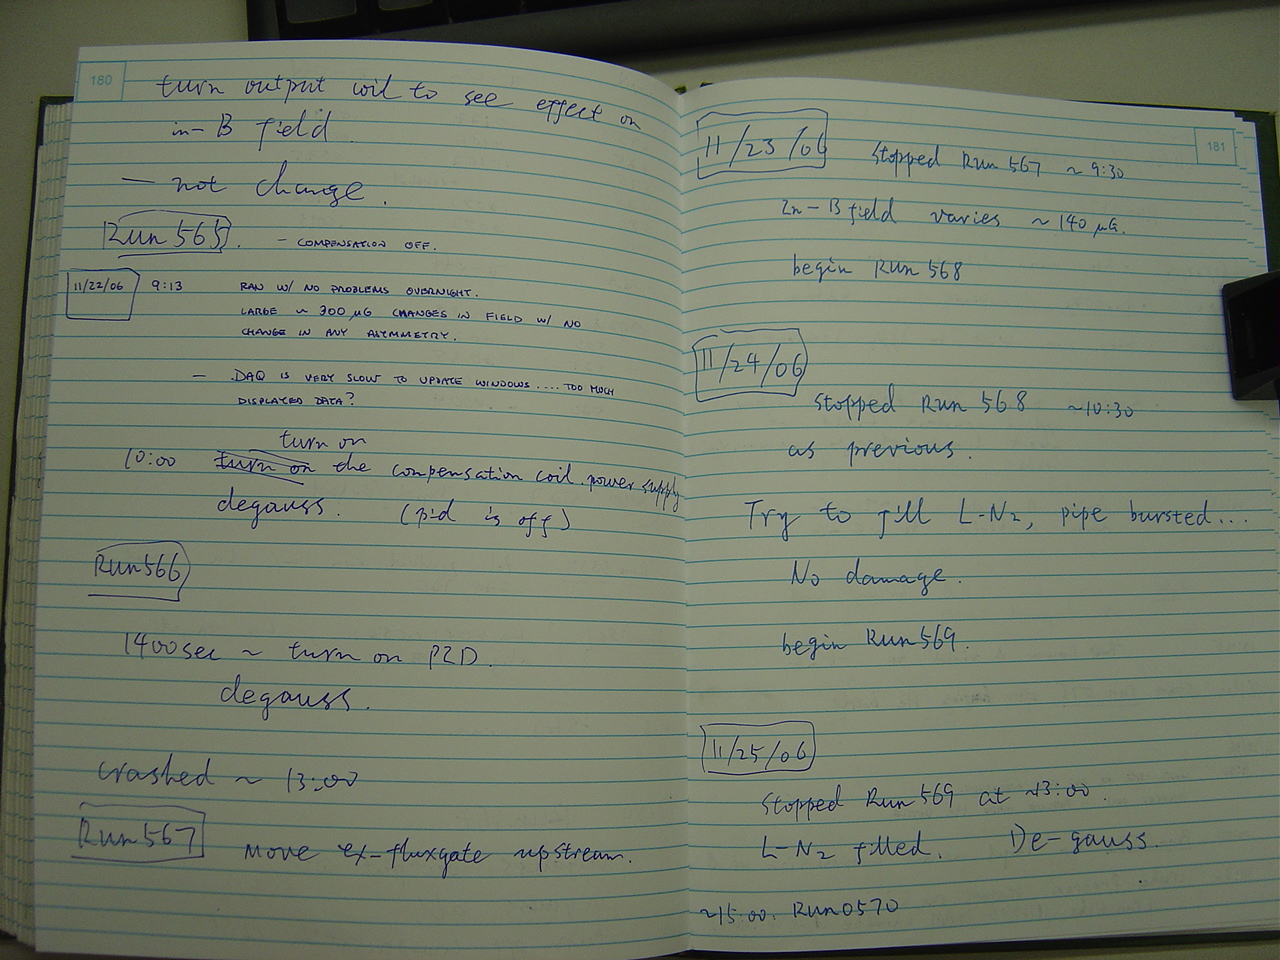 180
turn output coil to see effect on
in-B field
— not change.
Run 565. - COMPENSATION OFF.
11/22/06 9:13 RAN W/ NO PROBLEMS OVERNIGHT.
LARGE ~ 300 µG CHANGES IN FIELD W/ NO
CHANGE IN ANY ASYMMETRY.
— DAQ IS VERY SLOW TO UPDATE WINDOWS .... TOO MUCH
DISPLAYED DATA?
turn on
10:00 turn on the compensation coil power supply
degauss. (pid is off)
Run566
1400sec ~ turn on PID.
degauss.
crashed ~ 13:00
Run567 Move ex-fluxgate upstream.
181
11/23/06 Stopped Run 567 ~ 9:30
In-B field varies ~ 140 µG.
begin Run 568
11/24/06
Stopped Run 568 ~10:30
as previous.
Try to fill L-N2, pipe bursted...
No damage.
begin Run569.
11/25/06
Stopped Run 569 at ~13:00.
L-N2 filled. De-gauss.
~15:00. Run0570